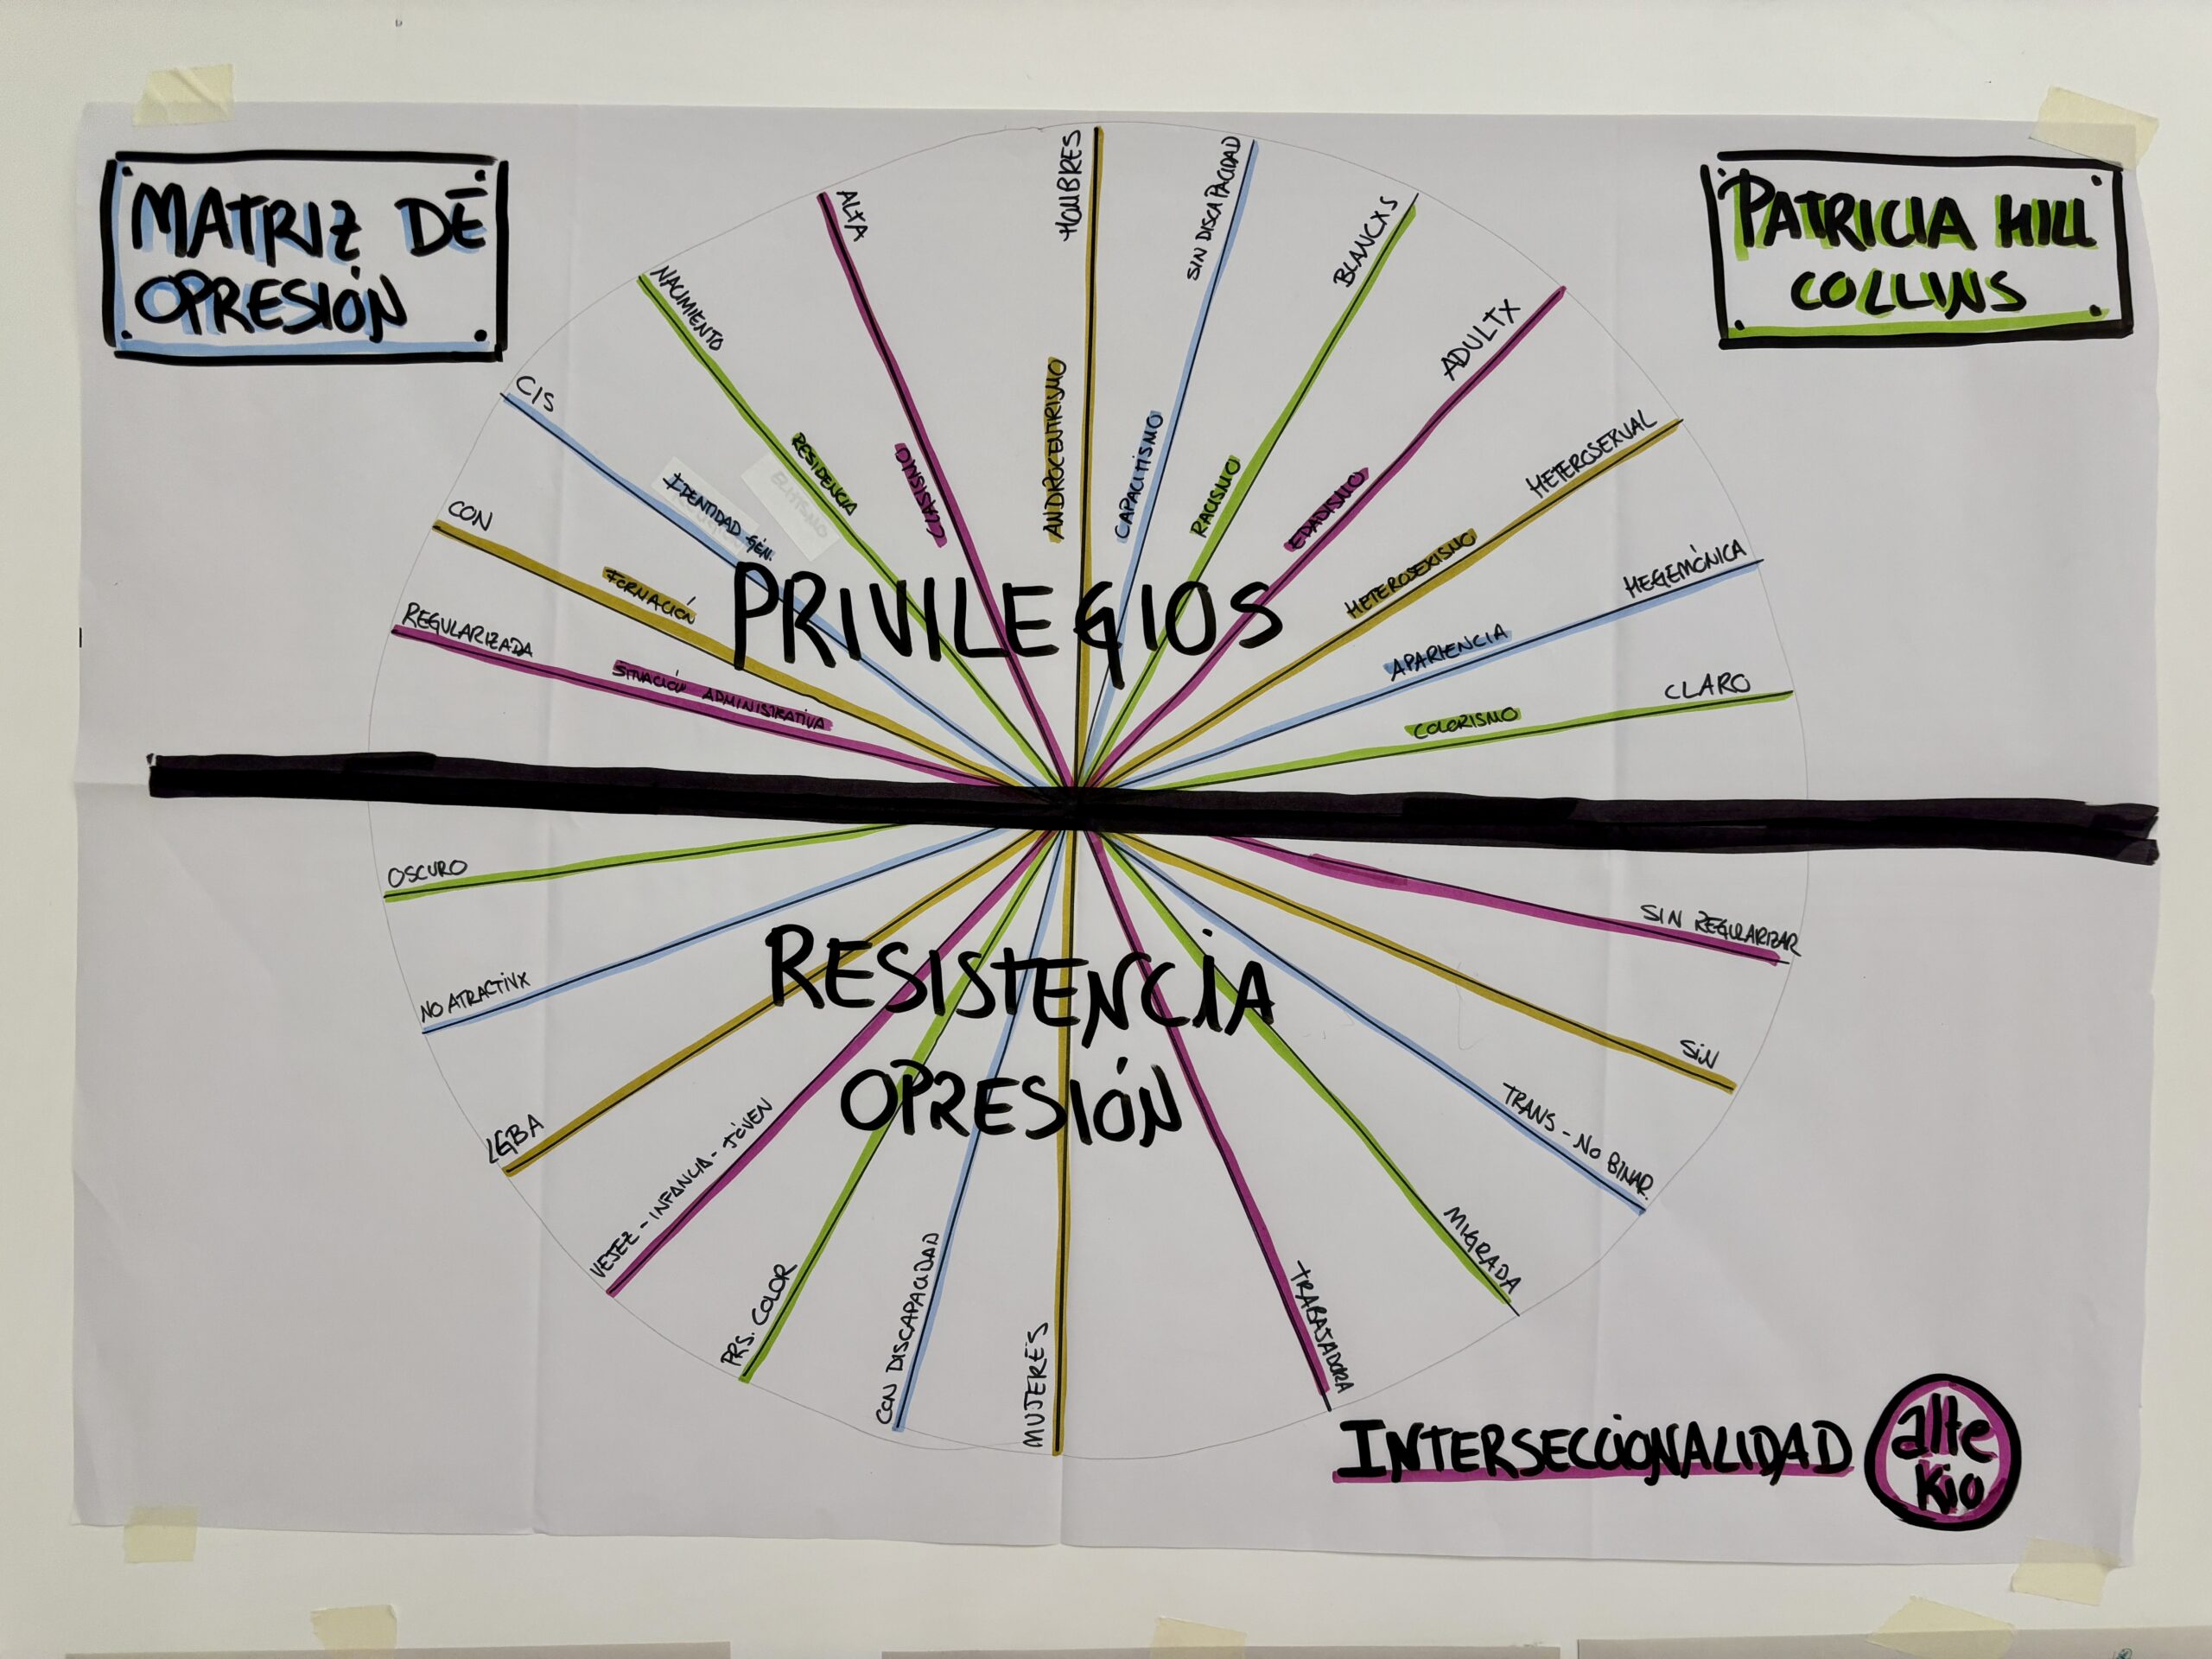 MATRIZ DE
OPRESIÓN
PATRICIA HILL
COLLINS
REGULARIZADA
SITUACIÓN ADMINISTRATIVA
CON
FORMACIÓN
CIS
IDENTIDAD GÉN.
NACIMIENTO
RESIDENCIA
ALTA
CLASISMO
HOMBRES
ANDROCENTRISMO
SIN DISCAPACIDAD
CAPACITISMO
BLANCXS
RACISMO
ADULTX
EDADISMO
HETEROSEXUAL
HETEROSEXISMO
HEGEMÓNICA
APARIENCIA
CLARO
COLORISMO
PRIVILEGIOS
RESISTENCIA
OPRESIÓN
OSCURO
NO ATRACTIVX
LGBA
VEJEZ - INFANCIA - JÓVEN
PRS. COLOR
CON DISCAPACIDAD
MUJERES
TRABAJADORA
MIGRADA
TRANS - NO BINAR.
SIN
SIN REGULARIZAR
INTERSECCIONALIDAD
alte
kio